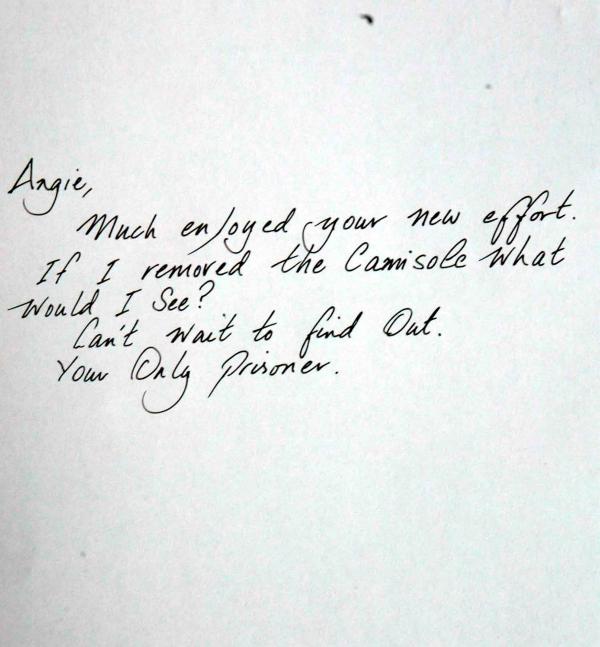 Angie,
Much enjoyed your new effort.
If I removed the Camisole what
would I See?
Can't wait to find Out.
Your Only prisoner.